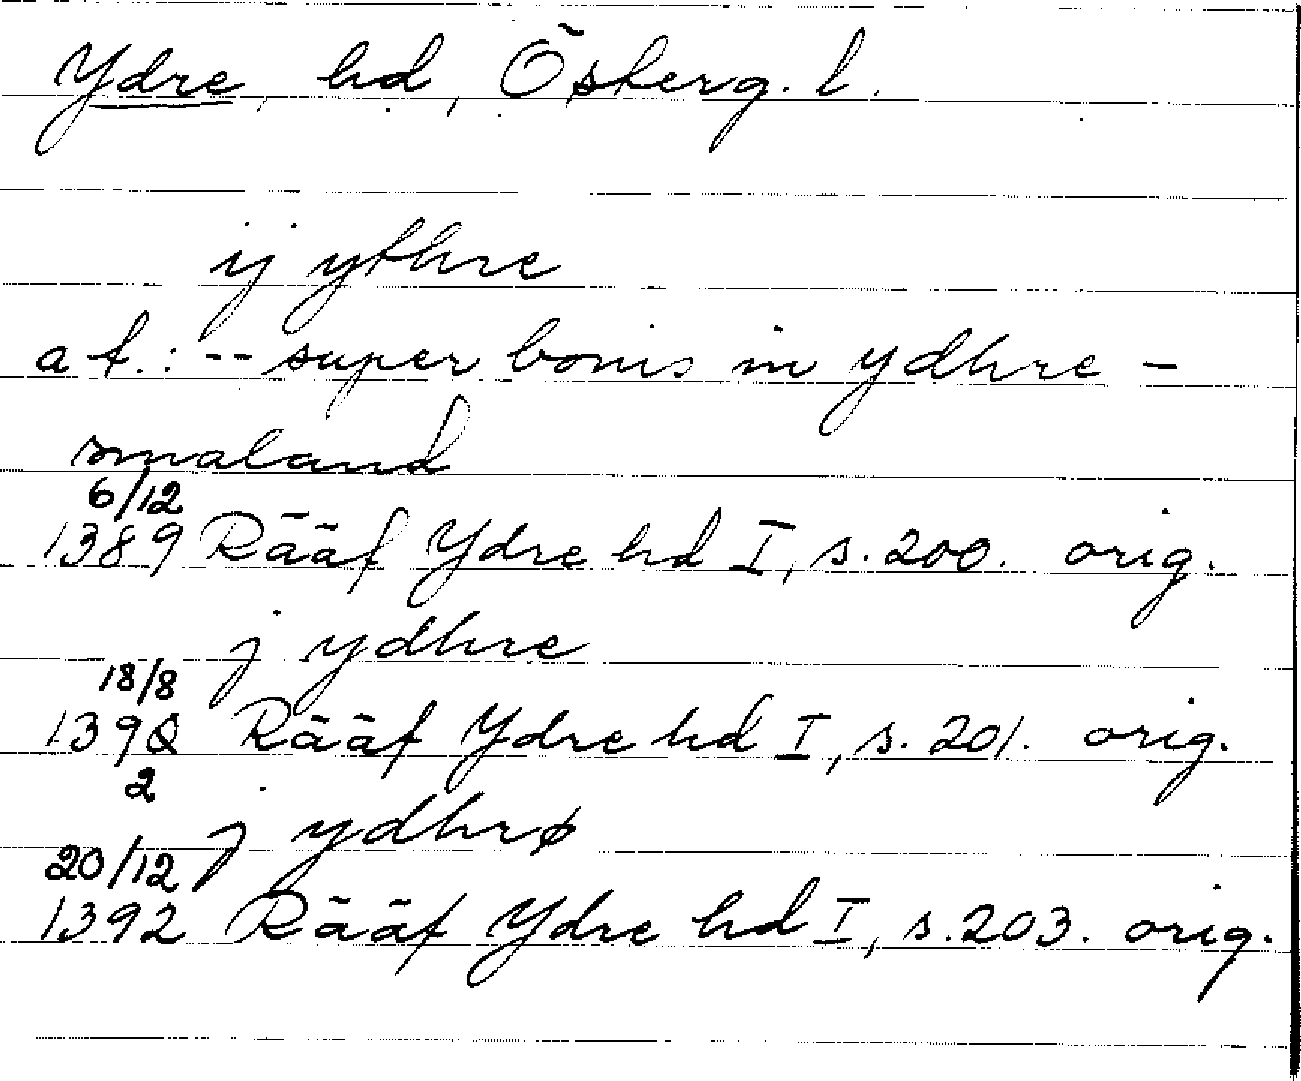 Ydre, hd, Österg. l.
ij ythre
at.: -- super bonis in ydhre -
smaland
6/12
1389 Rääf Ydre hd I, s. 200. orig.
j ydhre
18/8
1390 Rääf Ydre hd I, s. 201. orig.
2
j ydhrø
20/12
1392 Rääf Ydre hd I, s. 203. orig.